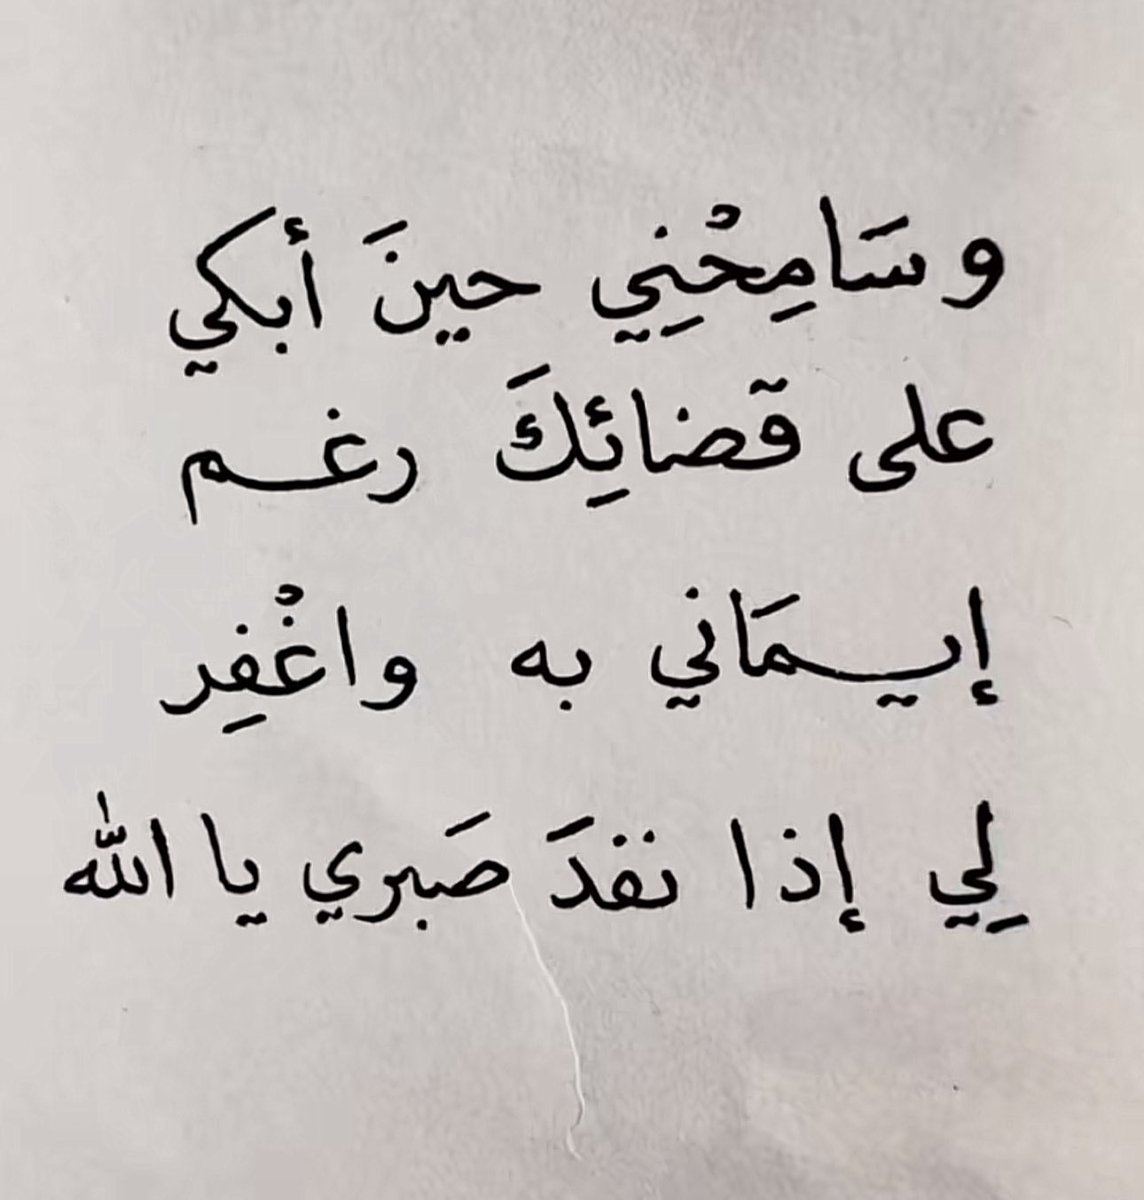 وسَامِحْنِي حينَ أبكي
على قضائِكَ رغم
إيمَاني به واغْفِر
لِي إذا نفدَ صَبري يا الله